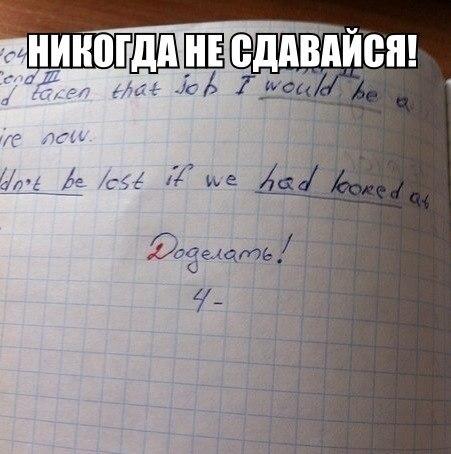 НИКОГДА НЕ СДАВАЙСЯ!
cond III
d taken that job I would be a
ire now.
dn't be lost if we had looked at
Доделать!
4-